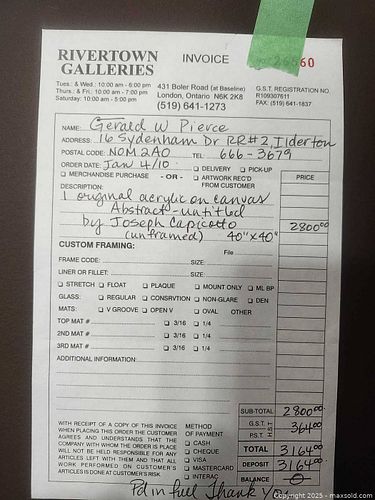 RIVERTOWN GALLERIES
INVOICE
60
Tues. & Wed.: 10:00 am - 6:00 pm
Thurs. & Fri.: 10:00 am - 7:00 pm
Saturday: 10:00 am - 5:00 pm
431 Boler Road (at Baseline)
London, Ontario N6K 2K8
(519) 641-1273
G.S.T. REGISTRATION NO.
R109307611
FAX: (519) 641-1837
NAME: Gerald W Pierce
ADDRESS: 16 Sydenham Dr RR#2, Ilderton
POSTAL CODE: N0M 2A0 TEL 666-3679
ORDER DATE: Jan 4/10 DELIVERY PICK-UP
MERCHANDISE PURCHASE - OR - ARTWORK REC'D FROM CUSTOMER
PRICE
DESCRIPTION:
1 original acrylic on canvas
Abstract - untitled
by Joseph Capicotto 2800.00
(unframed) 40"x40"
CUSTOM FRAMING: File
FRAME CODE: SIZE:
LINER OR FILLET: SIZE:
STRETCH FLOAT PLAQUE MOUNT ONLY ML BP
GLASS: REGULAR CONSRVTION NON-GLARE DEN
MATS: V GROOVE OPEN V OVAL OTHER
TOP MAT # 3/16 1/4
2ND MAT # 3/16 1/4
3RD MAT # 3/16 1/4
ADDITIONAL INFORMATION:
WITH RECEIPT OF A COPY OF THIS INVOICE
WHEN PLACING THIS ORDER THE CUSTOMER
AGREES AND UNDERSTANDS THAT THE
COMPANY WITH WHOM THE ORDER IS PLACE
WILL NOT BE HELD RESPONSIBLE FOR ANY
ARTICLES LEFT WITH THEM AND THAT ALL
WORK PERFORMED ON CUSTOMER'S
ARTICLES IS DONE AT CUSTOMER'S RISK.
METHOD OF PAYMENT
CASH
CHEQUE
VISA
MASTERCARD
INTERAC
SUB-TOTAL 2800.00
G.S.T. HST 364.00
P.S.T.
TOTAL 3164.00
DEPOSIT 3164.00
BALANCE 0
Pd in full Thank
Copyright 2025 - maxsold.com